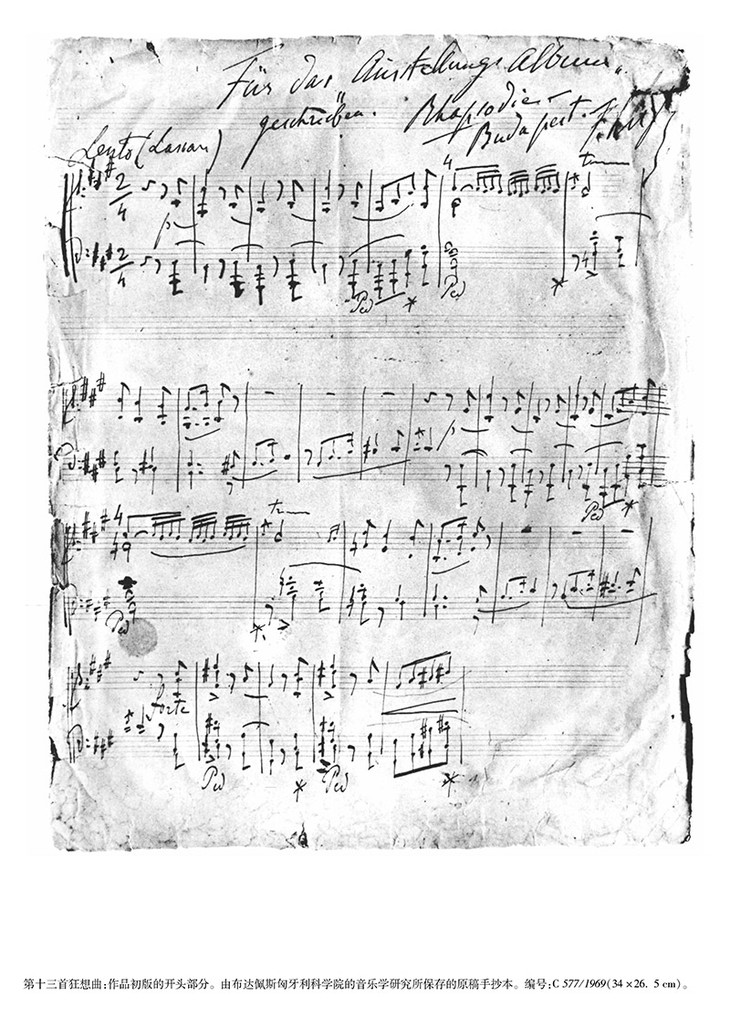 Für das "Austellungs Album"
geschrieben. Rhapsodie
Budapest.
Lento (Lassan)
tr
p
Ped *
Ped
p
Ped *
tr
Ped
*
forte
Ped
*
Ped
*
第十三首狂想曲:作品初版的开头部分。由布达佩斯匈牙利科学院的音乐学研究所保存的原稿手抄本。编号:C 577/1969(34×26. 5 cm)。